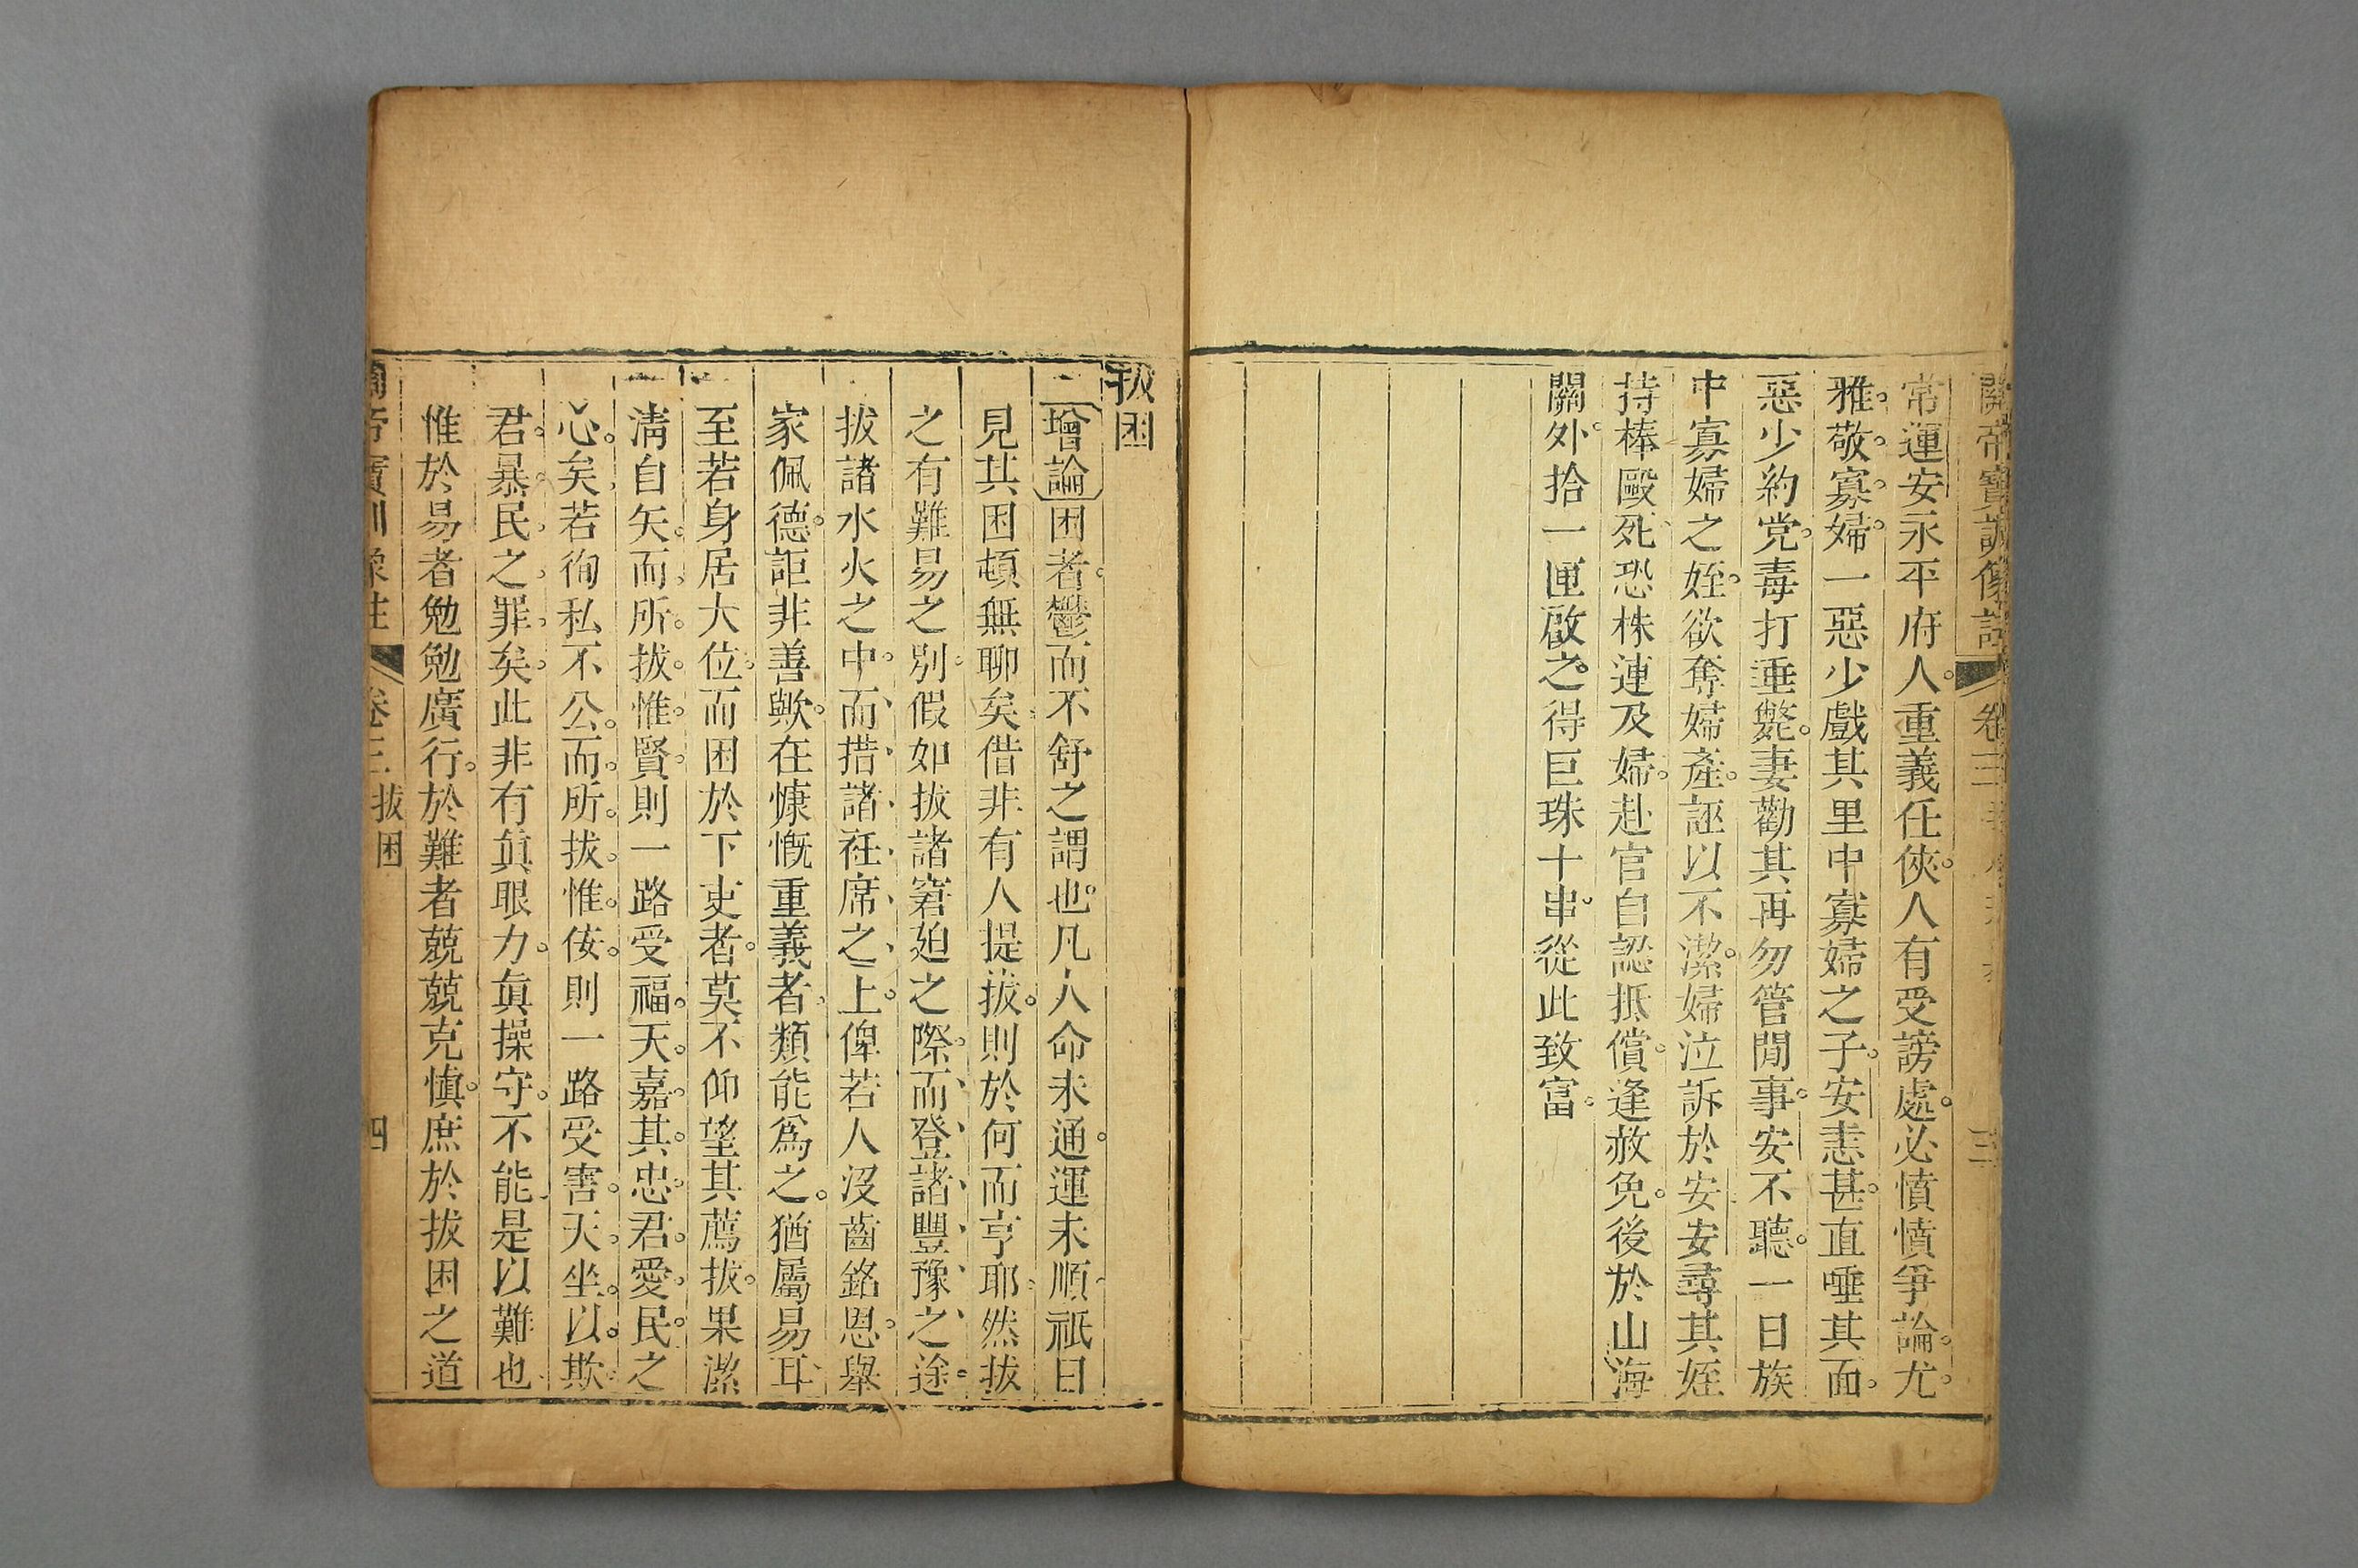 關帝寶訓像註 卷三 三
常運安永平府人重義任俠人有受謗處必憤憤爭論尤
雅敬寡婦一惡少戲其里中寡婦之子安恚甚直唾其面
惡少約党毒打垂斃妻勸其再勿管閒事安不聽一日族
中寡婦之姪欲奪婦產誣以不潔婦泣訴於安安尋其姪
持棒毆死恐株連及婦赴官自認抵償逢赦免後於山海
關外拾一匣啟之得巨珠十串從此致富
拔困
增論困者鬱而不舒之謂也凡人命未通運未順祇日
見其困頓無聊矣借非有人提拔則於何而亨耶然拔
之有難易之別假如拔諸窘廹之際而登諸豐豫之途
拔諸水火之中而措諸袵席之上俾若人沒齒銘恩舉
家佩德詎非善歟在慷慨重義者類能爲之猶屬易耳
至若身居大位而困於下吏者莫不仰望其薦拔果潔
淸自矢而所拔惟賢則一路受福天嘉其忠君愛民之
心矣若徇私不公而所拔惟佞則一路受害天坐以欺
君暴民之罪矣此非有眞眼力眞操守不能是以難也
惟於易者勉勉廣行於難者兢兢克愼庶於拔困之道
關帝寶訓像註 卷三 拔困 四